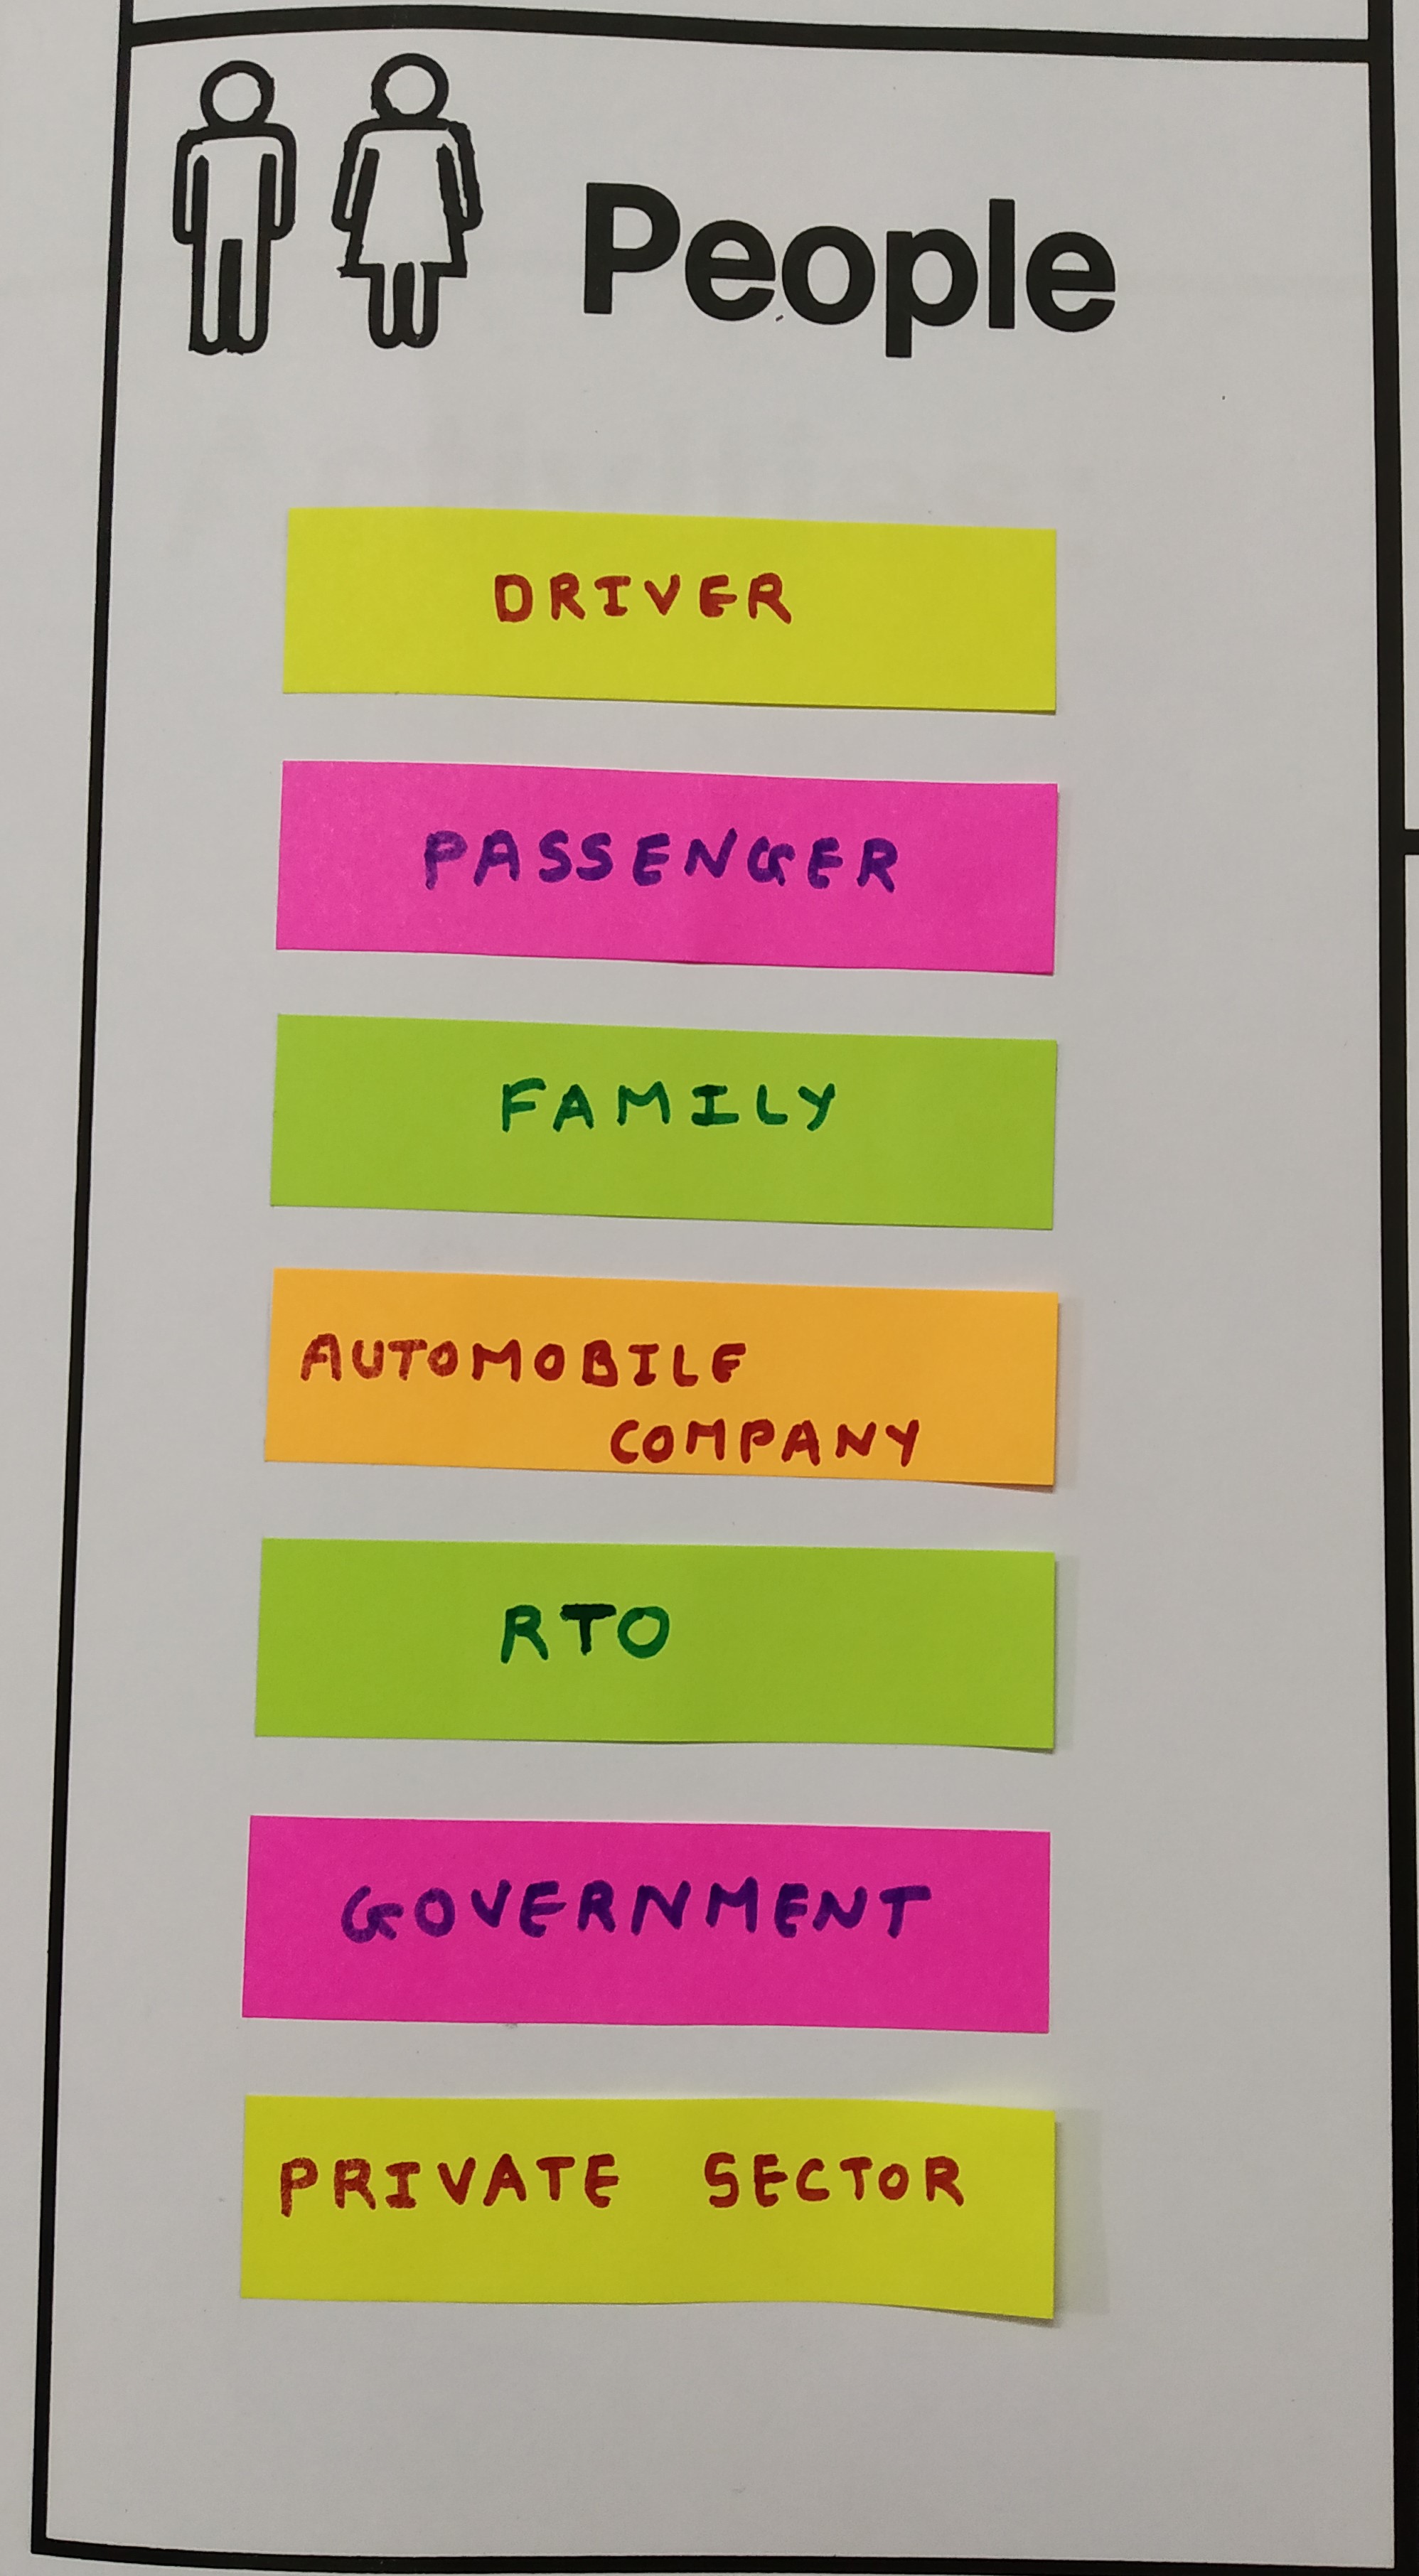 People
DRIVER
PASSENGER
FAMILY
AUTOMOBILE
COMPANY
RTO
GOVERNMENT
PRIVATE SECTOR